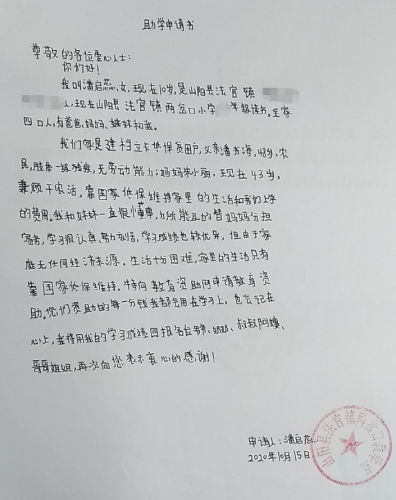 助学申请书
尊敬的各位爱心人士:
你们好!
我叫潘启蕊,女,现在10岁,是山阳县法官镇
人,现在山阳县法官镇两岔口小学 年级读书。全家
四口人,有爸爸、妈妈、妹妹和我。
我们家是建档立卡低保贫困户,父亲潘书海,48岁,农
民,肢体一级残疾,无劳动能力;妈妈朱小丽,现在43岁,
兼顾干农活,靠国家低保维持家里的生活和我们上学
的费用。我和妹妹一直很懂事,力所能及的替妈妈分担
家务,学习很认真、努力刻苦,学习成绩也较优异,但由于家
庭无任何经济来源。生活十分困难,家里的生活只有
靠国家低保维持。特向教育资助网申请教育资
助。您们资助的每一分钱我都会用在学习上,也会记在
心上,我将用我的学习成绩回报各位 叔叔阿姨、
哥哥姐姐,再次向您表示衷心的感谢!
申请人:潘启蕊
2020年10月15日